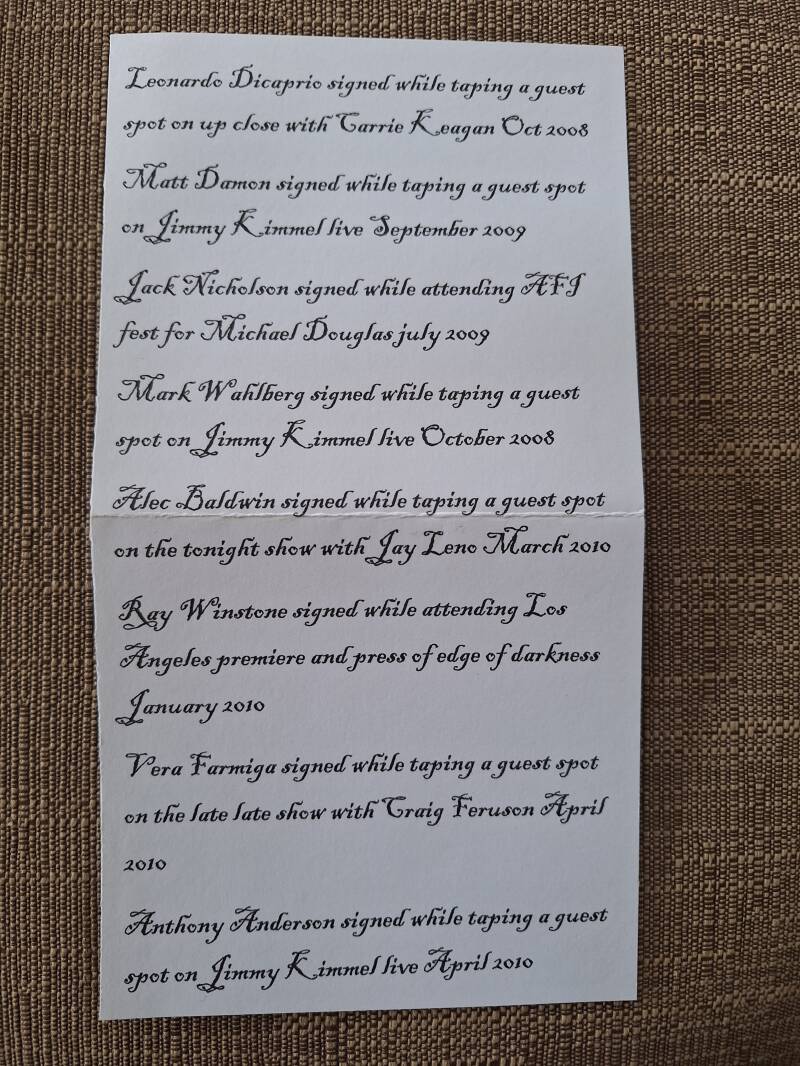 Leonardo Dicaprio signed while taping a guest
spot on up close with Carrie Keagan Oct 2008
Matt Damon signed while taping a guest spot
on Jimmy Kimmel live September 2009
Jack Nicholson signed while attending AFI
fest for Michael Douglas july 2009
Mark Wahlberg signed while taping a guest
spot on Jimmy Kimmel live October 2008
Alec Baldwin signed while taping a guest spot
on the tonight show with Jay Leno March 2010
Ray Winstone signed while attending Los
Angeles premiere and press of edge of darkness
January 2010
Vera Farmiga signed while taping a guest spot
on the late late show with Craig Feruson April
2010
Anthony Anderson signed while taping a guest
spot on Jimmy Kimmel live April 2010